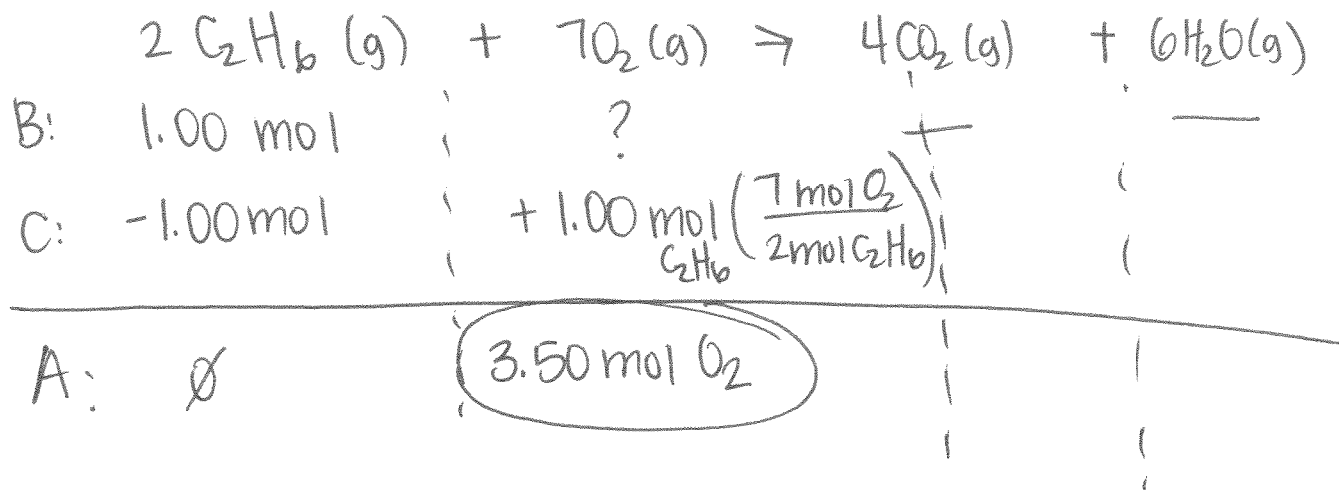 2 C₂H₆ (g) + 7O₂ (g) → 4CO₂ (g) + 6H₂O(g)
B: 1.00 mol ? — —
C: -1.00 mol + 1.00 mol C₂H₆ (7 mol O₂ / 2 mol C₂H₆)
A: ∅ 3.50 mol O₂